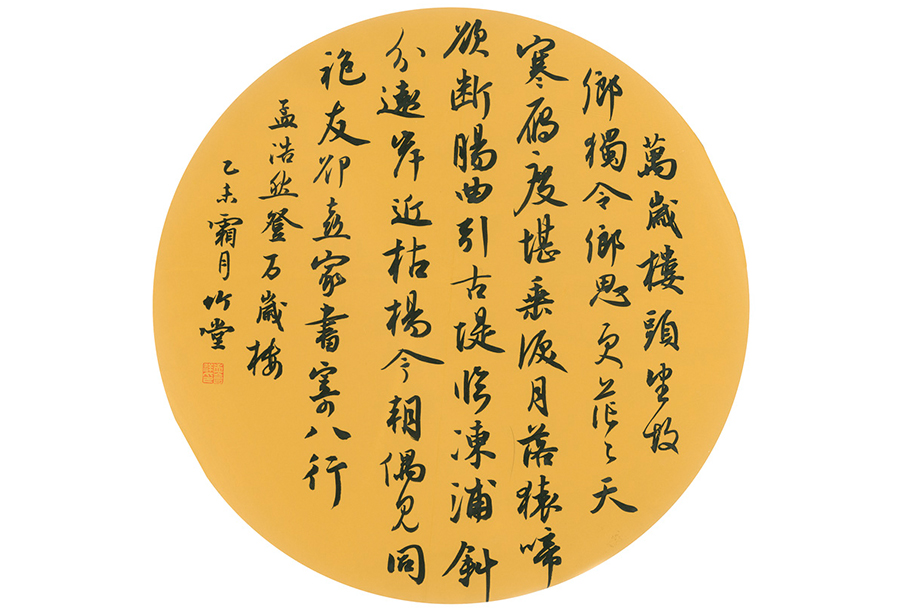 萬歲樓頭望故
鄉獨令鄉思更茫々天
寒雁度堪垂淚月落猿啼
欲断腸曲引古堤临凍浦斜
分遠岸近枯楊今朝偶見同
袍友卻喜家書寄八行
孟浩然登万歲楼
乙未霜月竹堂